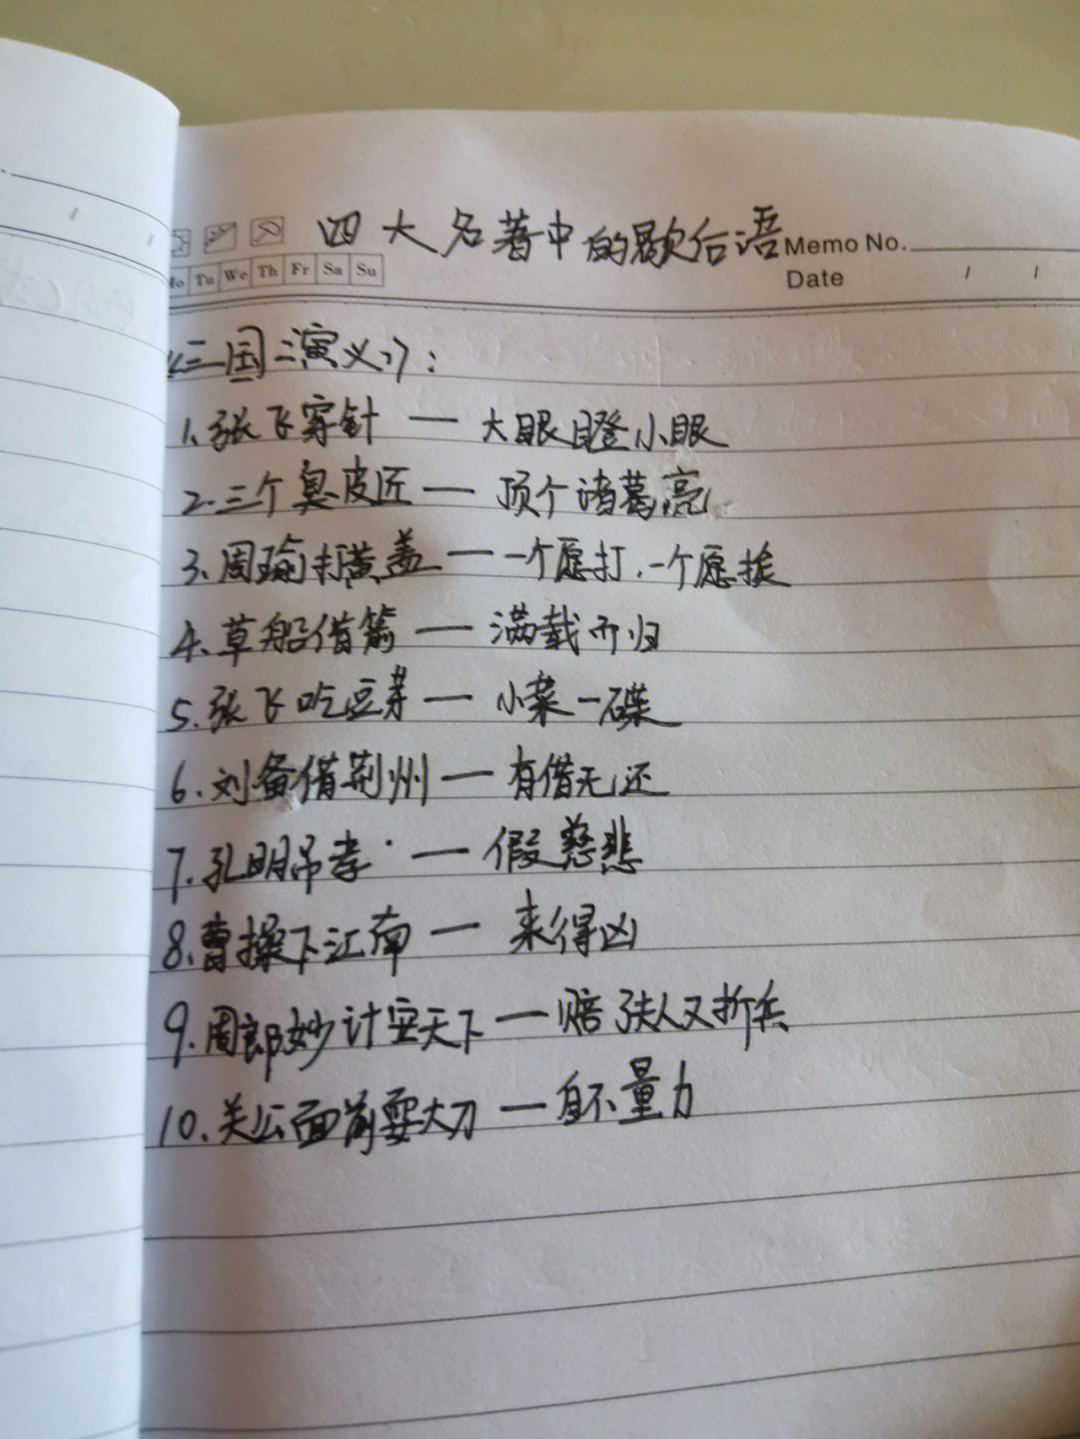 四大名著中的歇后语 Memo No.
Mo Tu We Th Fr Sa Su Date / /
《三国演义》:
1、张飞穿针 — 大眼瞪小眼
2.三个臭皮匠 — 顶个诸葛亮
3、周瑜打黄盖 — 一个愿打,一个愿挨
4、草船借箭 — 满载而归
5.张飞吃豆芽 — 小菜一碟
6.刘备借荆州 — 有借无还
7.孔明吊孝 — 假慈悲
8.曹操下江南 — 来得凶
9.周郎妙计安天下 — 赔了夫人又折兵
10、关公面前耍大刀 — 自不量力